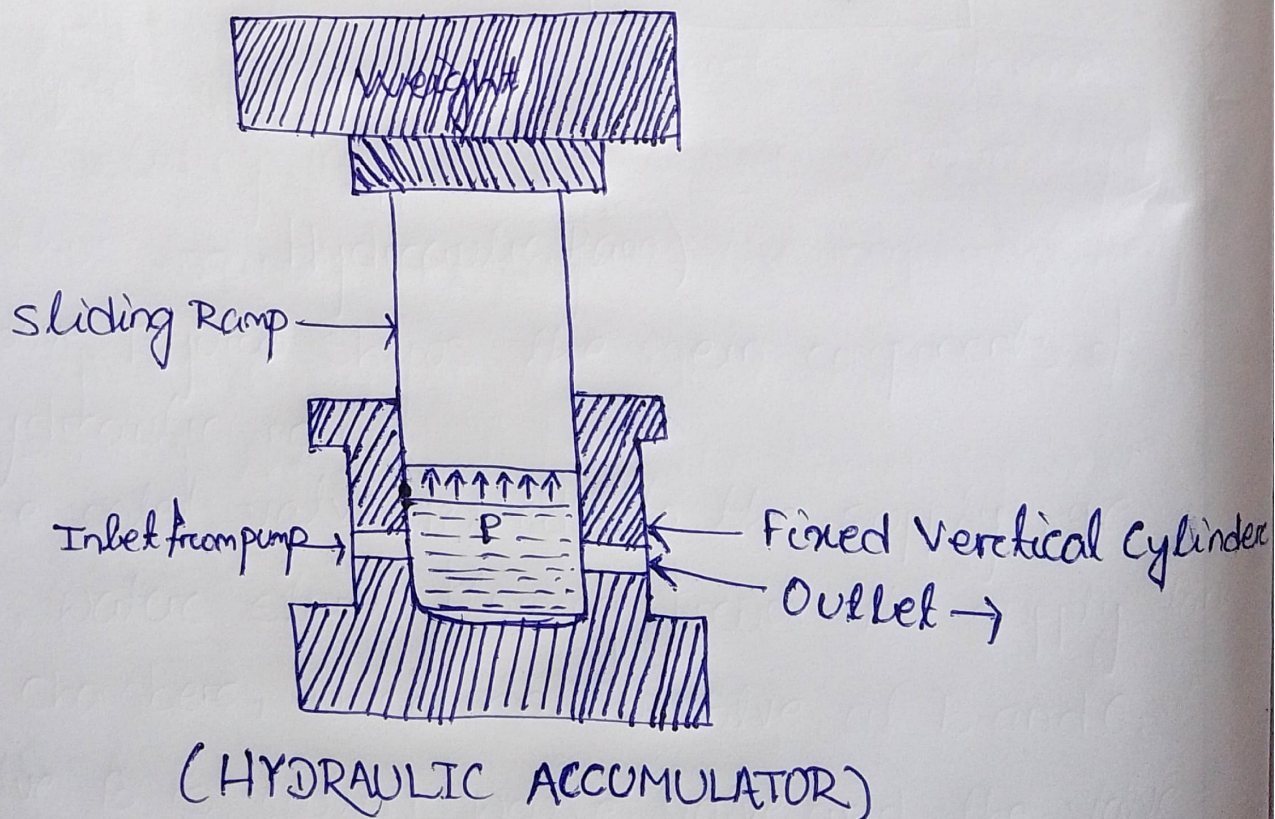 Weight
Sliding Ramp
P
Inlet from pump
Fixed Vertical Cylinder
Outlet →
(HYDRAULIC ACCUMULATOR)